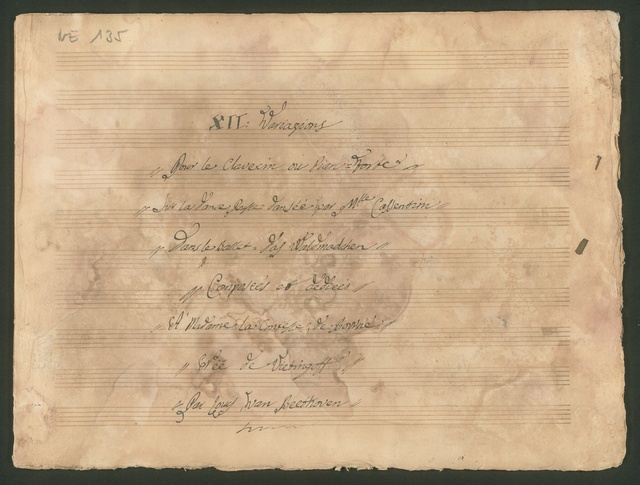 NE 135
XII: Variazions
Pour le Clavecin ou Pian-Forte
Sur la danse Russe dansée par Mlle Cassentini
Dans le Ballet: das Waldmädchen
Composées et Dediées
A Madame la Comtesse de Browne
Née de Vietinghoff
Par Louis van Beethoven